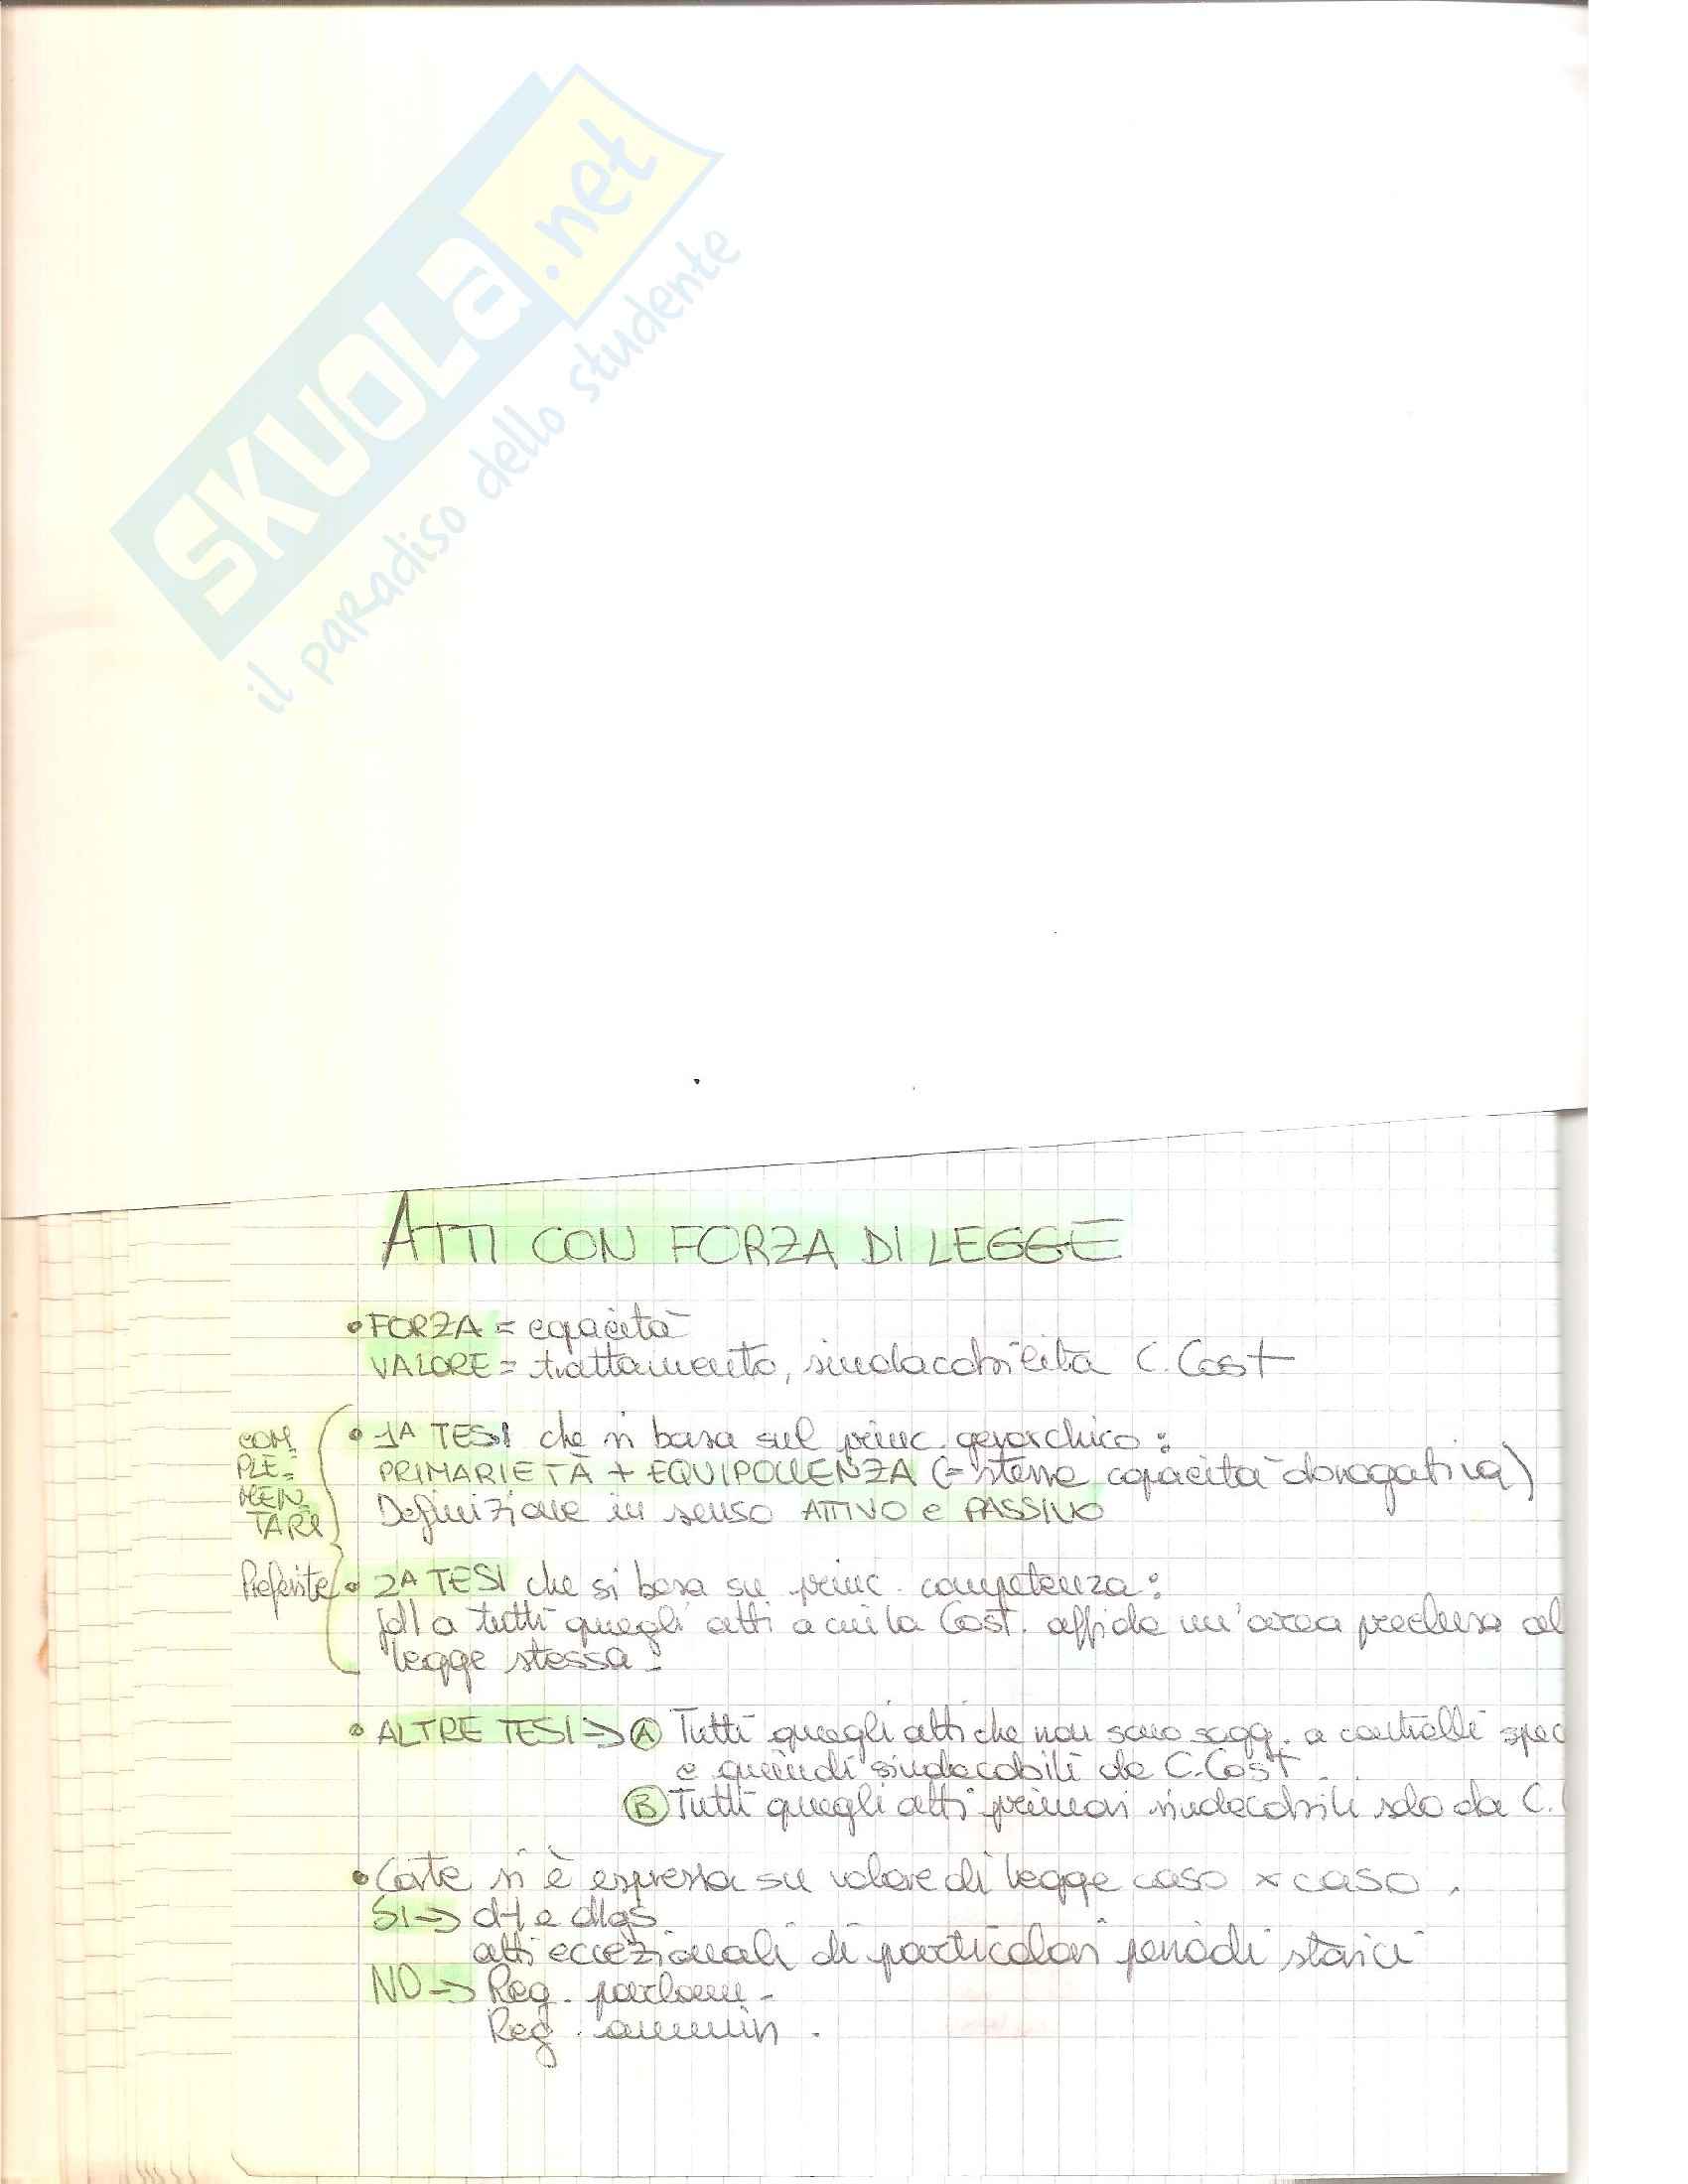 SKUOLA.net
il paradiso dello studente
ATTI CON FORZA DI LEGGE
• FORZA = capacità
VALORE = trattamento, sindacabilità C. Cost
COM
PLE-
MEN
TARI
• 1ª TESI che si basa sul princ. gerarchico:
PRIMARIETÀ + EQUIPOLLENZA (= stessa capacità derogativa)
Definizione in senso ATTIVO e PASSIVO
Preferite
• 2ª TESI che si basa su princ. competenza:
fdl a tutti quegli atti a cui la Cost. affida un'area preclusa al
legge stessa.
• ALTRE TESI → A Tutti quegli atti che non sono sogg. a controlli spec
e quindi sindacabili da C. Cost.
B Tutti quegli atti primari sindacabili solo da C.
• Corte si è espressa su valore di legge caso x caso.
SI → dl e dlgs
atti eccezionali di particolari periodi storici
NO → Reg. parlam.
Reg. ammin.